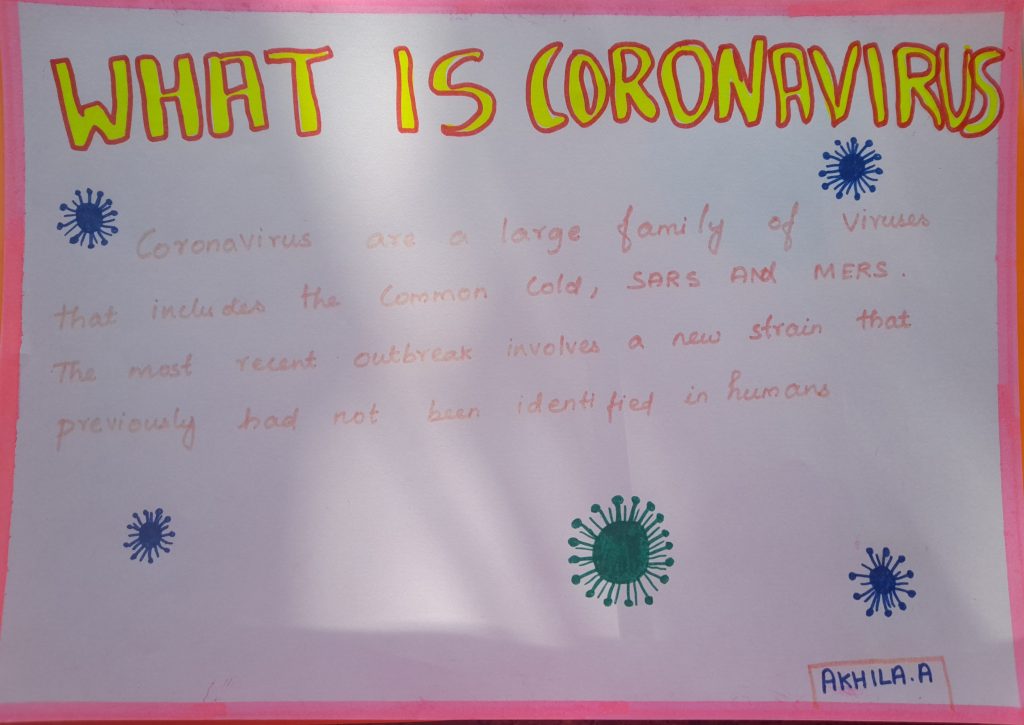 WHAT IS CORONAVIRUS
Coronavirus are a large family of viruses
that includes the Common Cold, SARS AND MERS.
The most recent outbreak involves a new strain that
previously had not been identified in humans
AKHILA.A